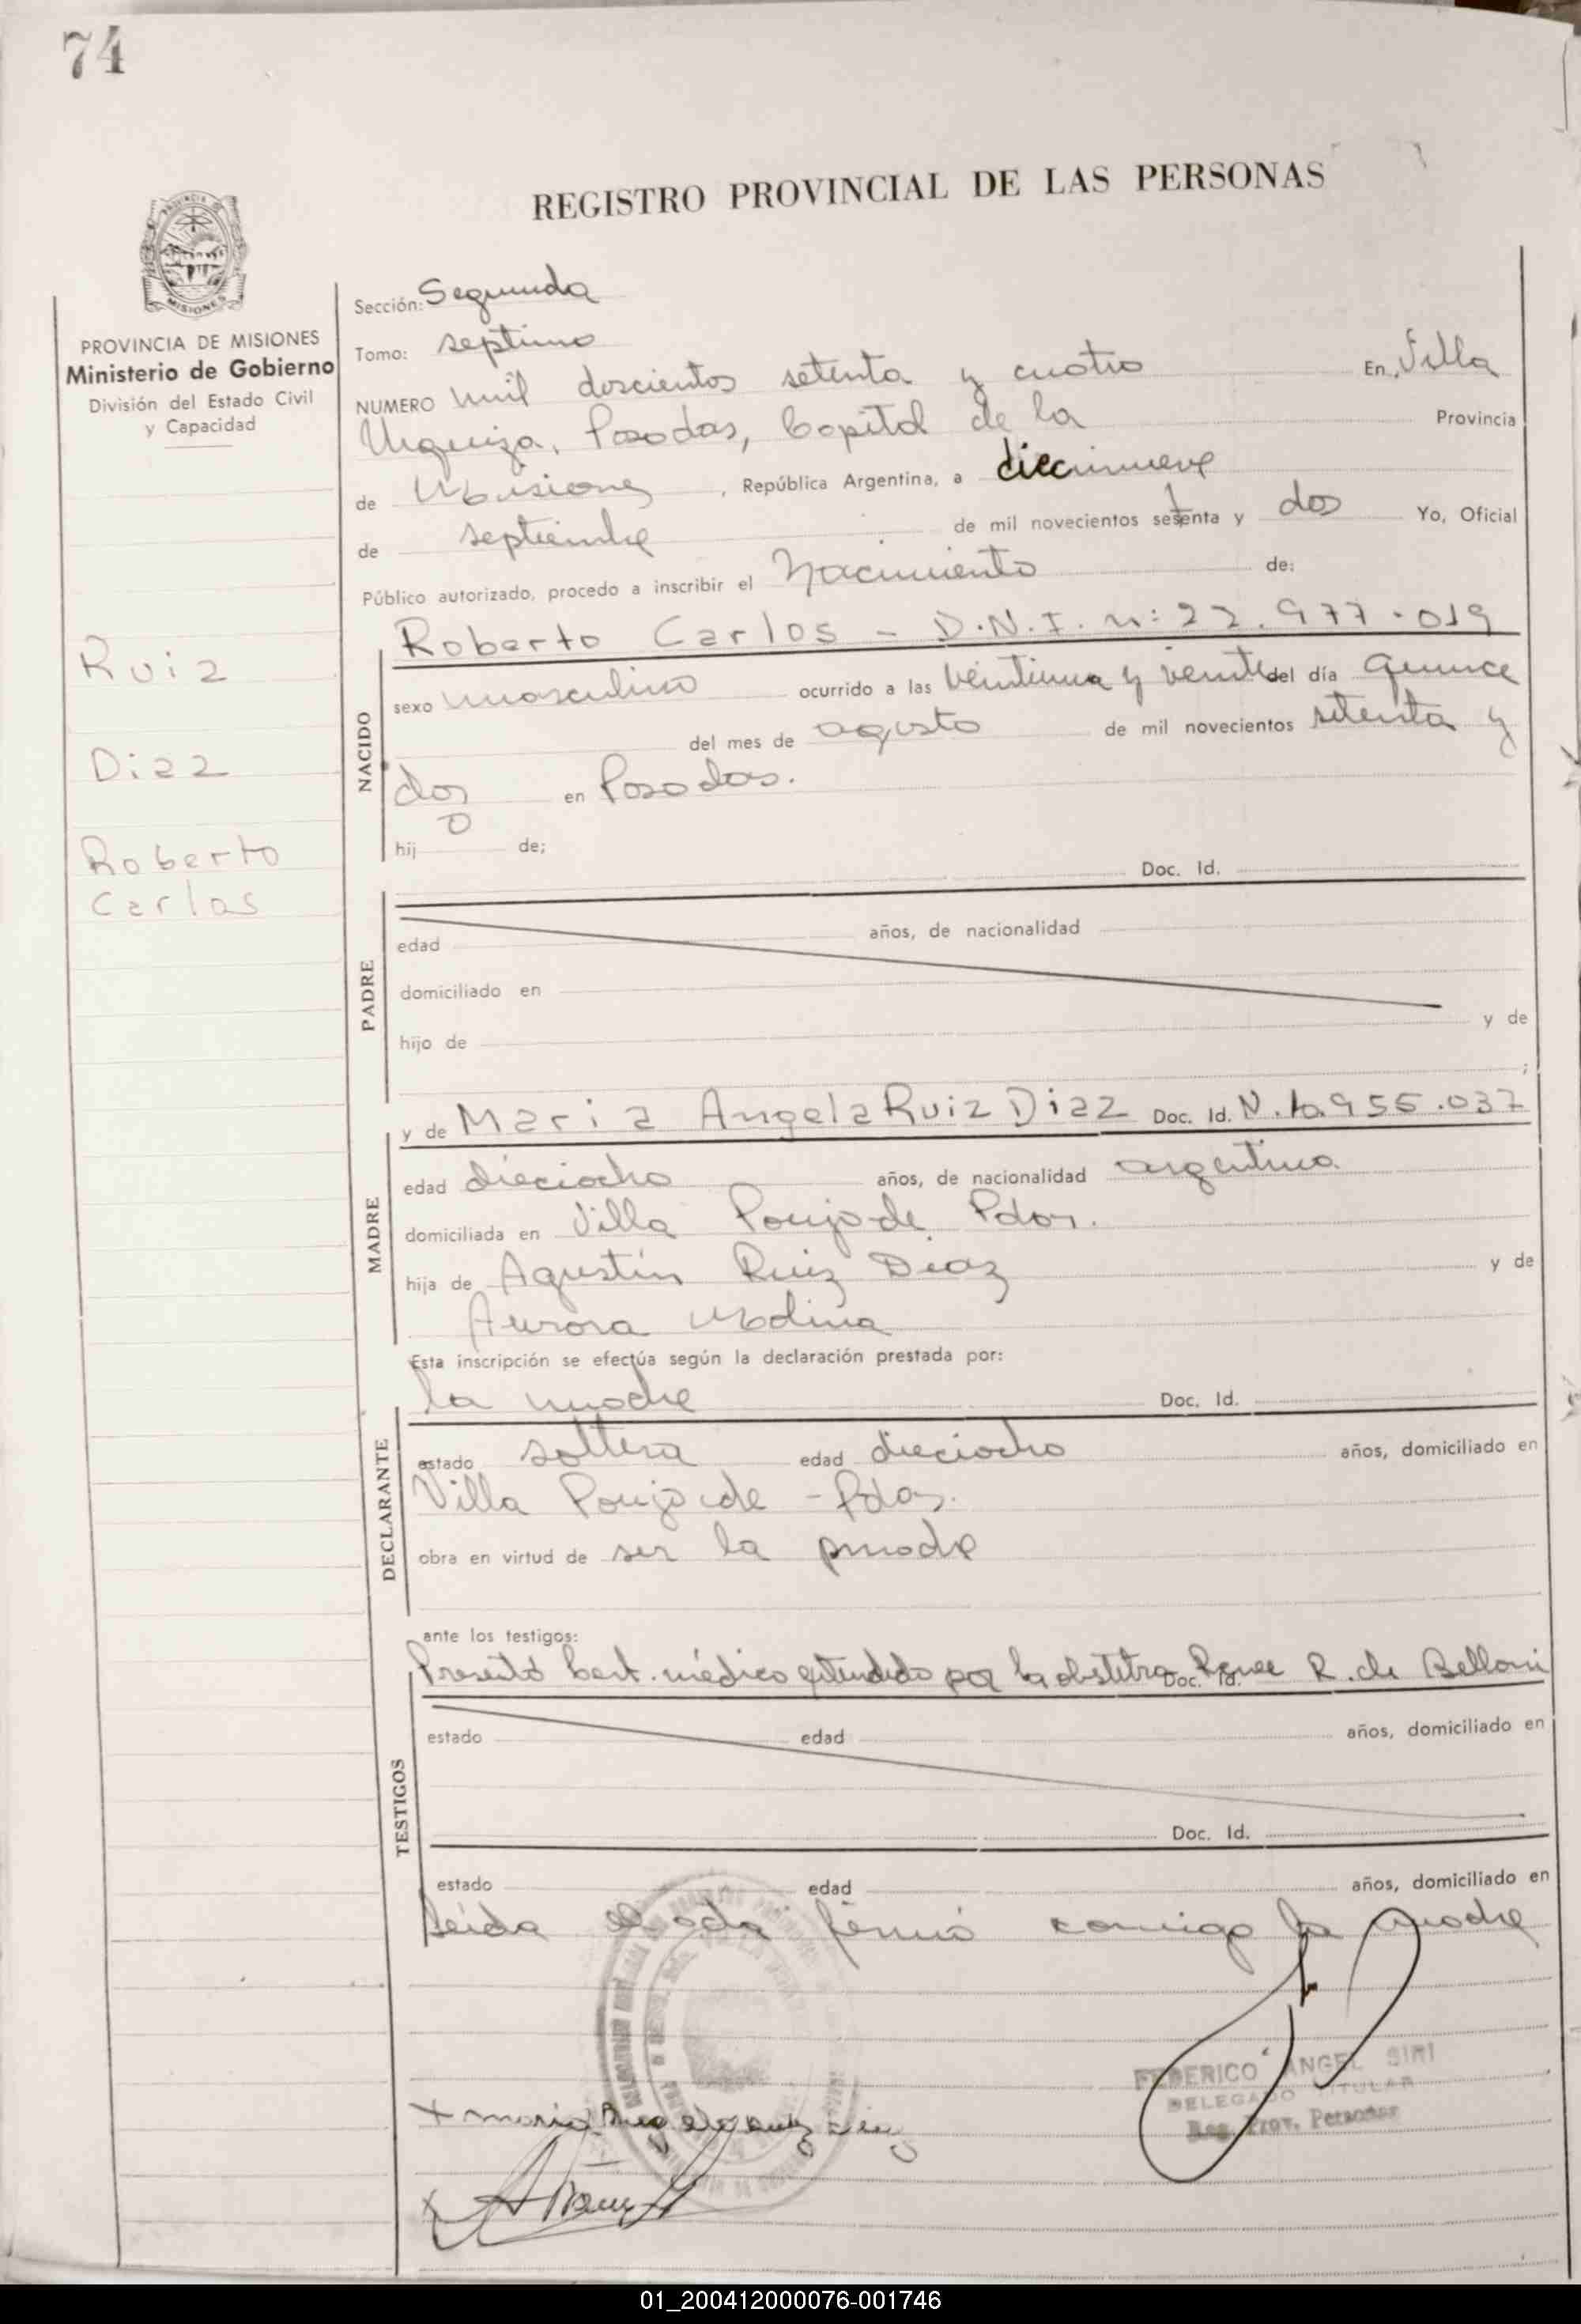 74
REGISTRO PROVINCIAL DE LAS PERSONAS
MISIONES
PROVINCIA DE MISIONES
Ministerio de Gobierno
División del Estado Civil
y Capacidad
Sección: Segunda
Tomo: septimo
NUMERO mil doscientos setenta y cuatro En, Villa
Urquiza, Posadas, Capital de la Provincia
de Misiones, República Argentina, a diecinueve
de septiembre de mil novecientos setenta y dos Yo, Oficial
Público autorizado, procedo a inscribir el Nacimiento de:
Ruiz
Diaz
Roberto
Carlos
NACIDO
Roberto Carlos - D.N.I. n: 22.977.019
sexo masculino ocurrido a las veintiuna y veinte del día quince
del mes de agosto de mil novecientos setenta y
dos en Posadas.
hijo de;
Doc. Id.
PADRE
edad años, de nacionalidad
domiciliado en
hijo de y de
;
MADRE
y de Maria Angela Ruiz Diaz Doc. Id. N. 10.955.037
edad dieciocho años, de nacionalidad argentina
domiciliada en Villa Poujade Pdas.
hija de Agustín Ruiz Diaz y de
Aurora Molina
Esta inscripción se efectúa según la declaración prestada por:
DECLARANTE
la madre Doc. Id.
estado soltera edad dieciocho años, domiciliado en
Villa Poujade - Pdas.
obra en virtud de ser la madre
ante los testigos:
TESTIGOS
Presentó Cert. médico extendido por la obstetra Doc. Id. Renee R. de Belloni
estado edad años, domiciliado en
Doc. Id.
estado edad años, domiciliado en
Leída el acta firmó conmigo la madre
FEDERICO ANGEL SIRI
DELEGADO TITULAR
Reg. Prov. Personas
x maria Angela ruiz Diaz
x
01_200412000076-001746